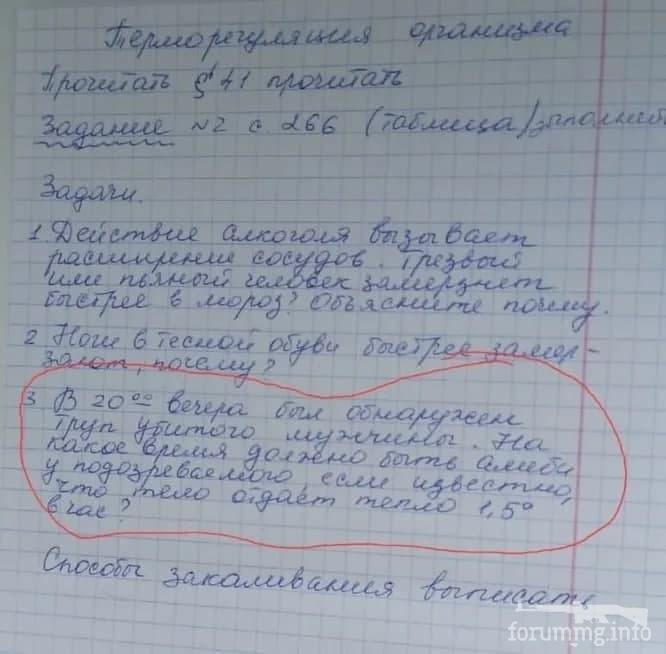 Терморегуляция организма
Прочитать § 41 прочитать
Задание №2 с. 266 (таблица)
Задачи.
1. Действие алкоголя вызывает
расширение сосудов. Трезвый
или пьяный человек замерзнет
быстрее в мороз? Объясните почему.
2 Ноги в тесной обуви быстрее замер-
зают, почему?
3. В 20⁰⁰ вечера был обнаружен
труп убитого мужчины. На
какое время должно быть алиби
у подозреваемого, если известно,
что тело отдает тепло 1,5°
в час?
Способы закаливания выписать
forummg.info